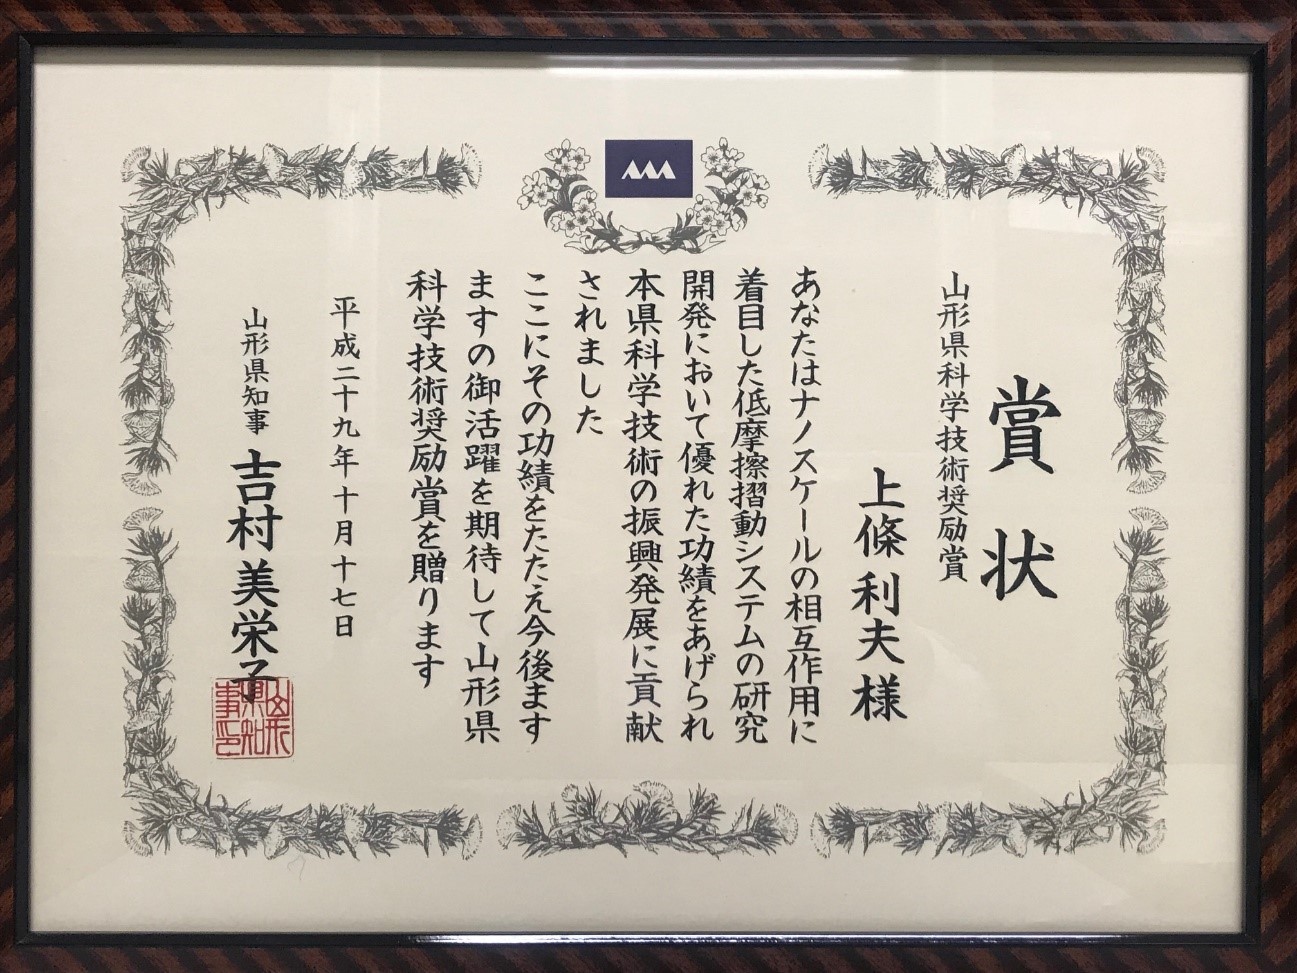 賞状
山形県科学技術奨励賞
上條利夫様
あなたはナノスケールの相互作用に
着目した低摩擦摺動システムの研究
開発において優れた功績をあげられ
本県科学技術の振興発展に貢献
されました
ここにその功績をたたえ今後ます
ますの御活躍を期待して山形県
科学技術奨励賞を贈ります
平成二十九年十月十七日
山形県知事 吉村美栄子
山形県知事印